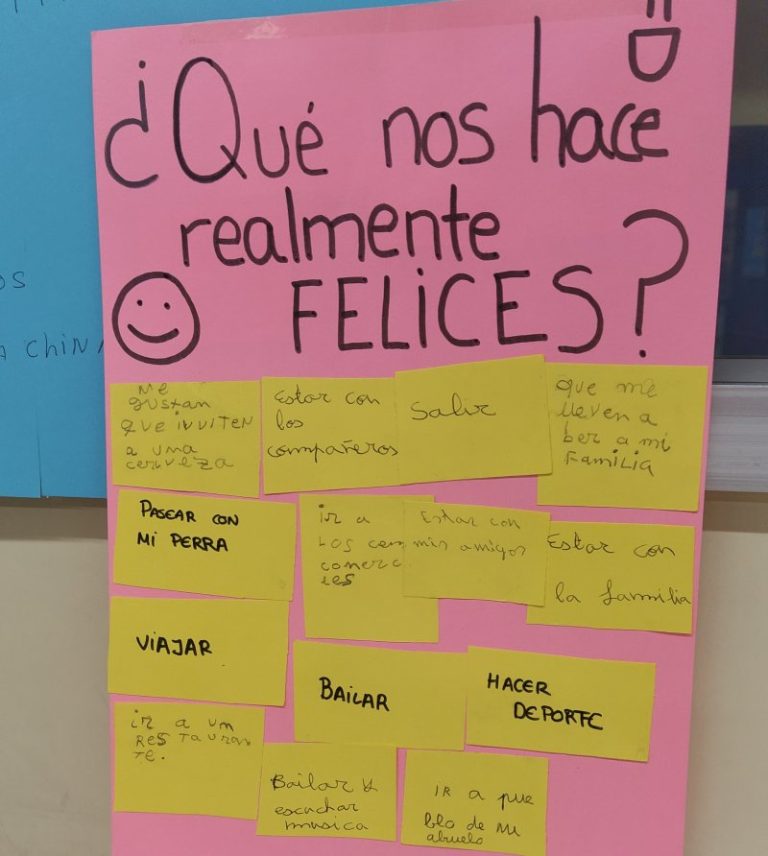 ¿Qué nos hace
realmente
FELICES?
Me
gustan
que inviten
a una
cerveza
Estar con
los
compañeros
Salir
que me
lleven a
ber a mi
Familia
PASEAR CON
MI PERRA
ir a
Los cen
comerc
les
Estar con
mis amigos
Estar con
la familia
VIAJAR
BAILAR
HACER
DEPORTE
ir a un
Restauran
te.
Bailar y
escuchar
musica
IR a pue
blo de mi
abuelo
os
a CHIN